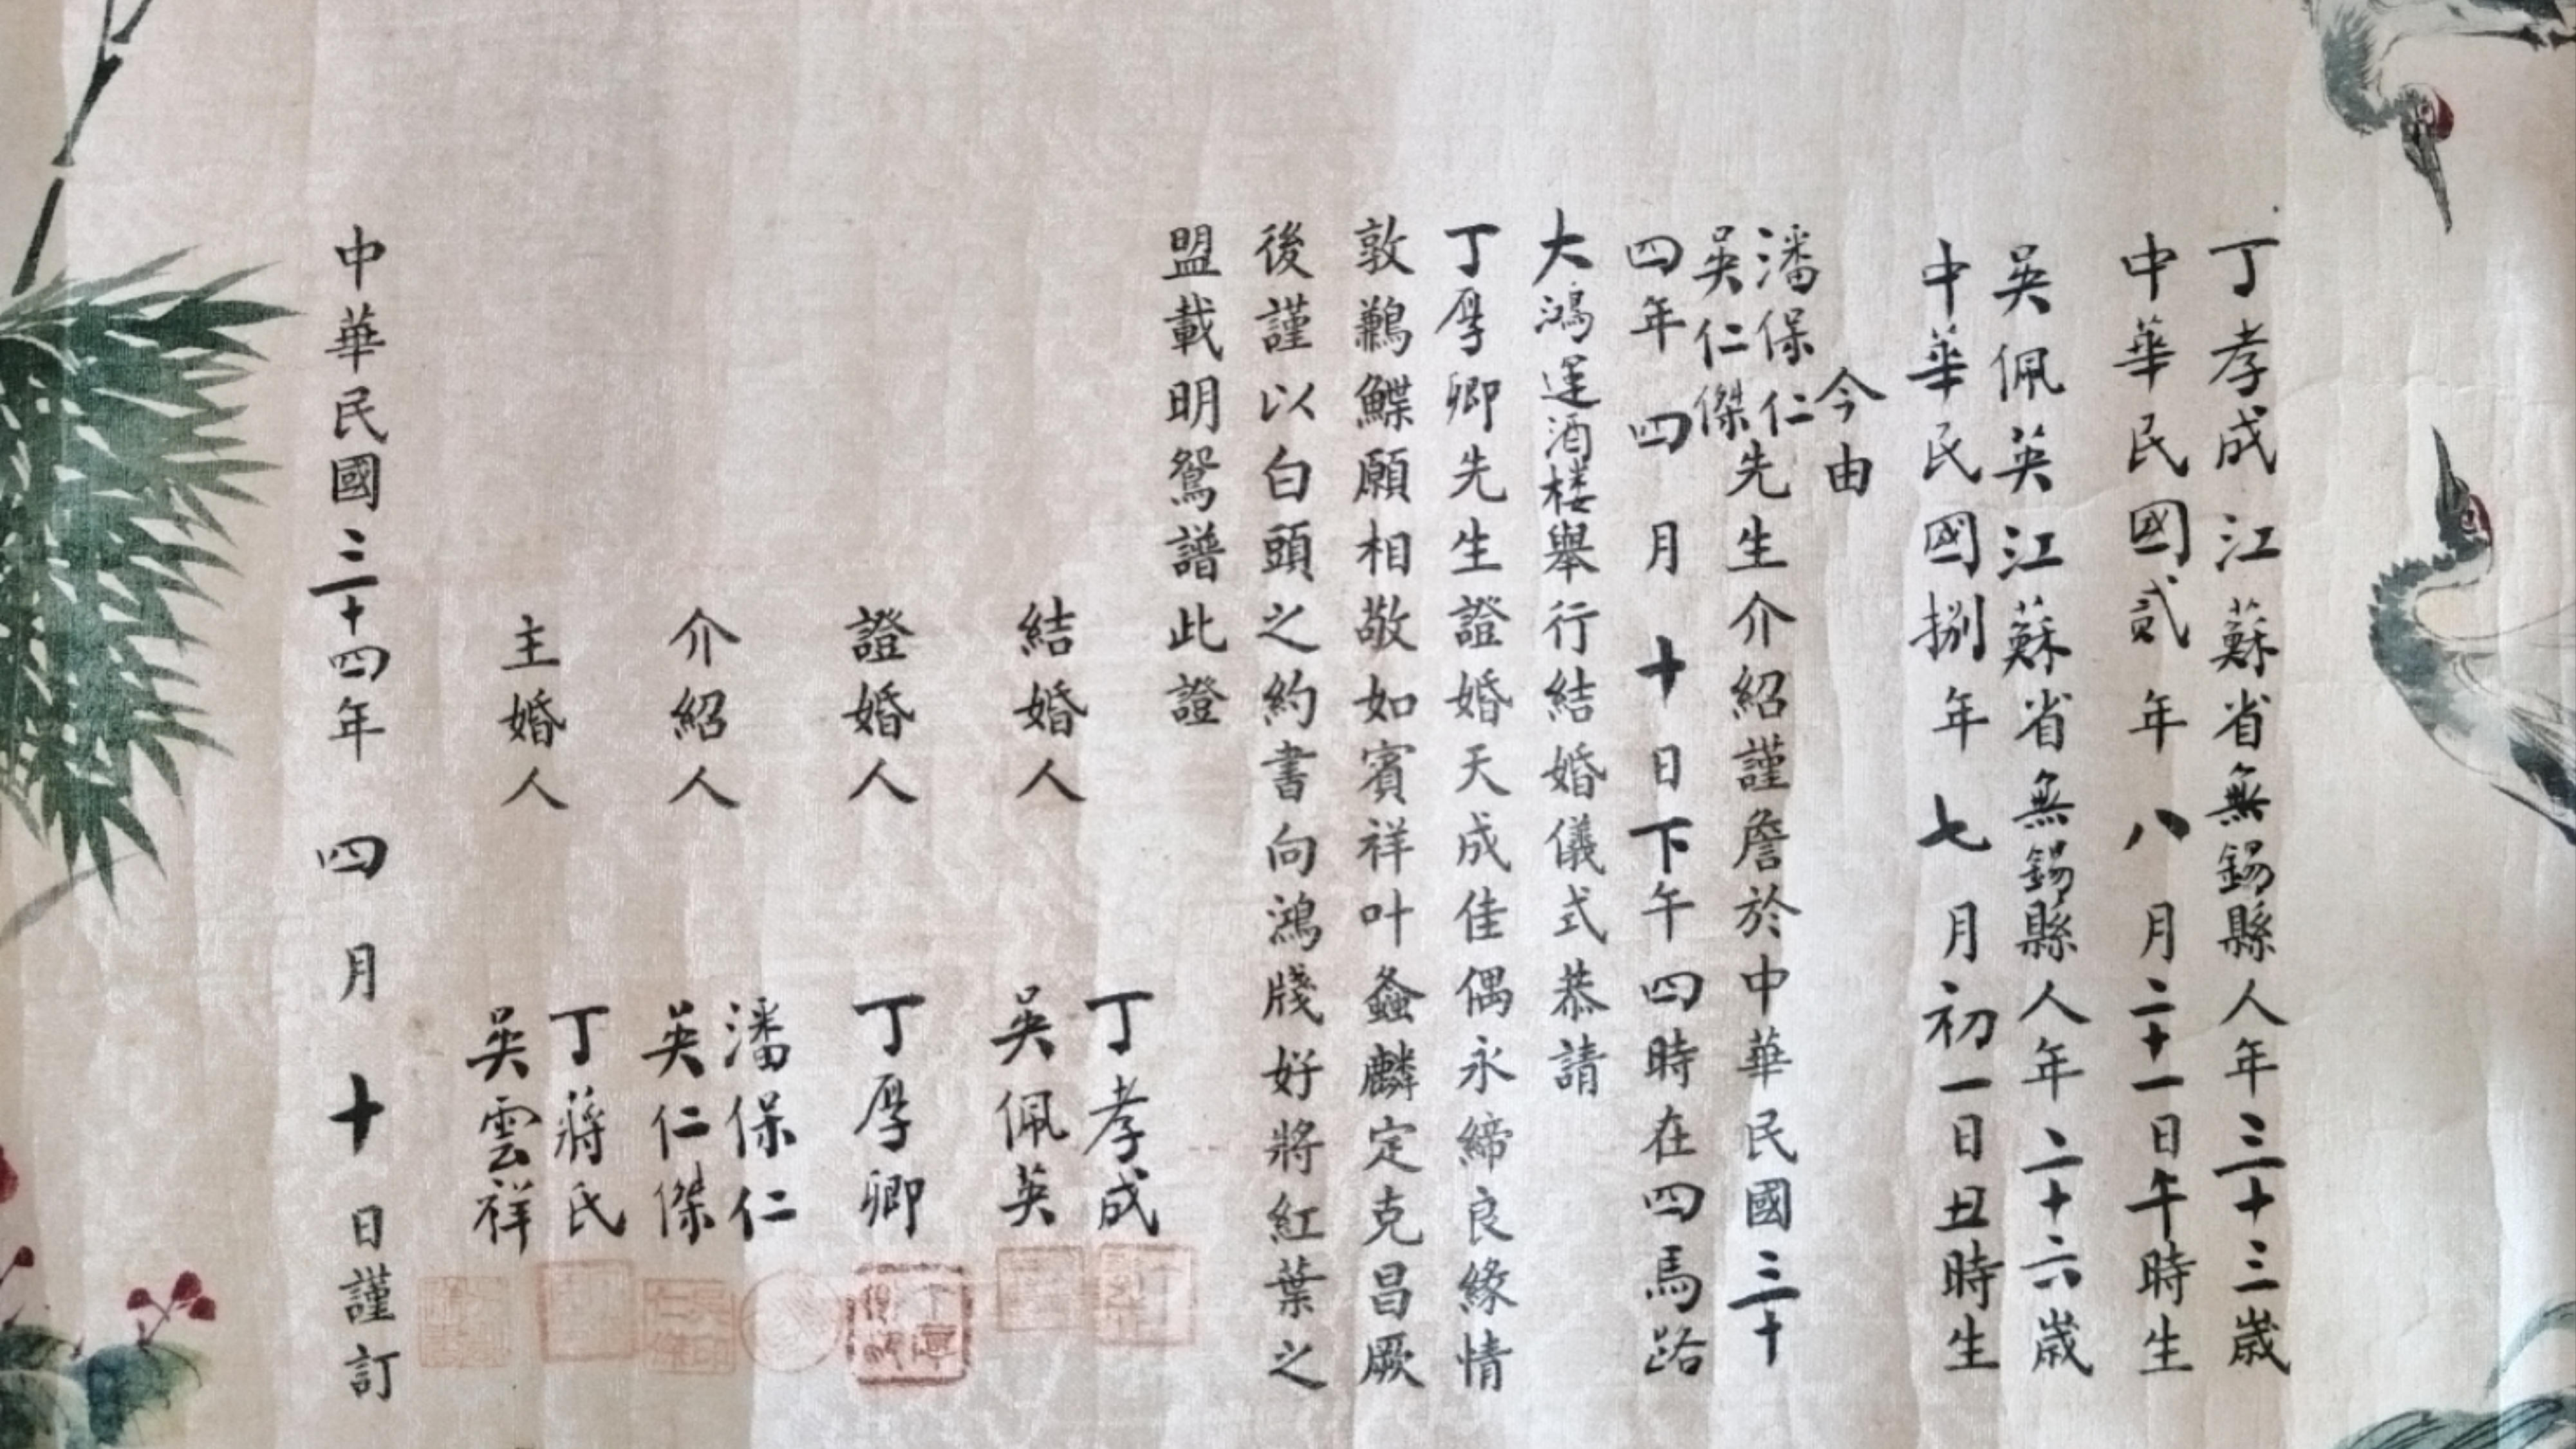 丁孝成江蘇省無錫縣人年三十三歲
中華民國貳年八月二十一日午時生
吳佩英江蘇省無錫縣人年二十六歲
中華民國捌年七月初一日丑時生
今由
潘保仁
吳仁傑
先生介紹謹詹於中華民國三十
四年四月十日下午四時在四馬路
大鴻運酒楼舉行結婚儀式恭請
丁厚卿先生證婚天成佳偶永締良緣情
敦鶼鰈願相敬如賓祥叶螽麟定克昌厥
後謹以白頭之約書向鴻牋好將紅葉之
盟載明鴛譜此證
結婚人
丁孝成
吳佩英
證婚人
丁厚卿
介紹人
潘保仁
吳仁傑
主婚人
丁蔣氏
吳雲祥
中華民國三十四年四月十日謹訂